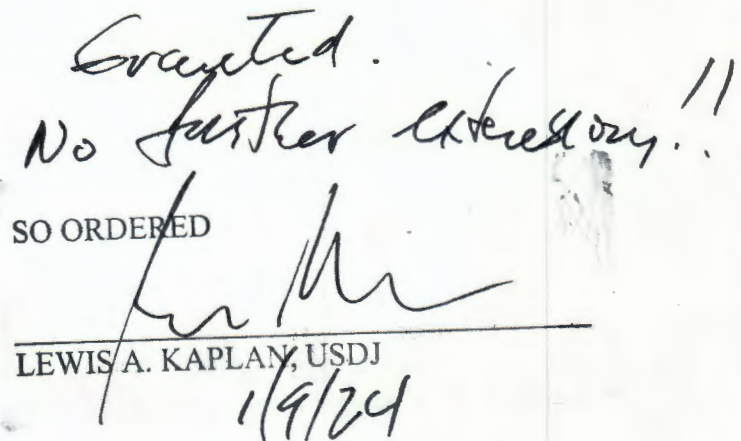 Granted.
No further extensions!!
SO ORDERED
LEWIS A. KAPLAN, USDJ
1/9/24